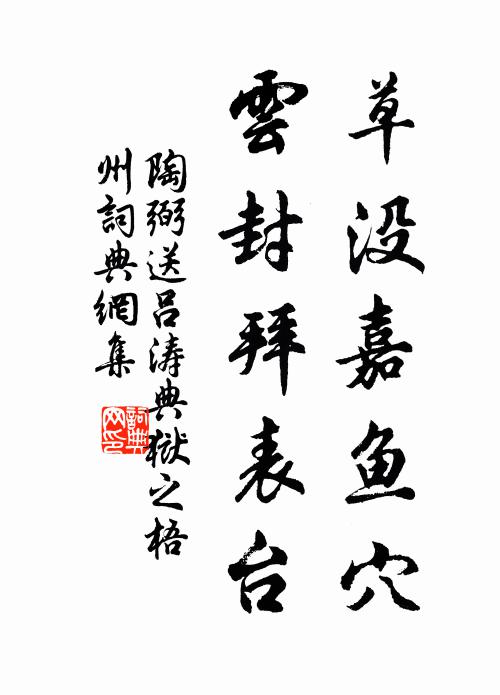 草没嘉鱼穴
雲封拜表台
陶弼送吕涛典獄之梧
州詞典網集
詞典网印